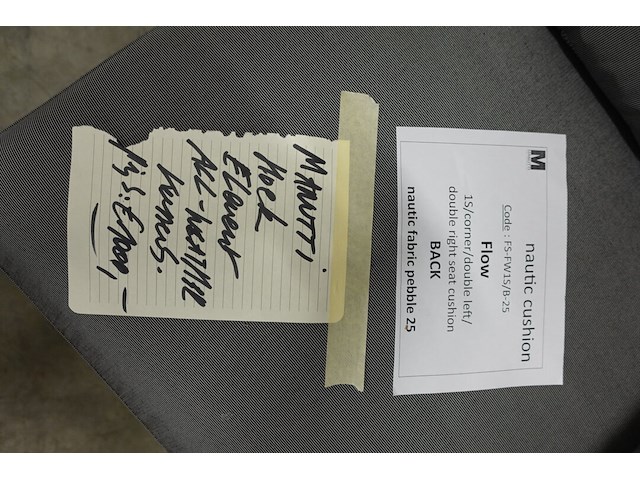 MANUTTI
Hoek
Element
ALL-WEATHER
kussens.
M
nautic cushion
Code : FS-FW1S/B-25
Flow
1S/corner/double left/
double right seat cushion
BACK
nautic fabric pebble 25